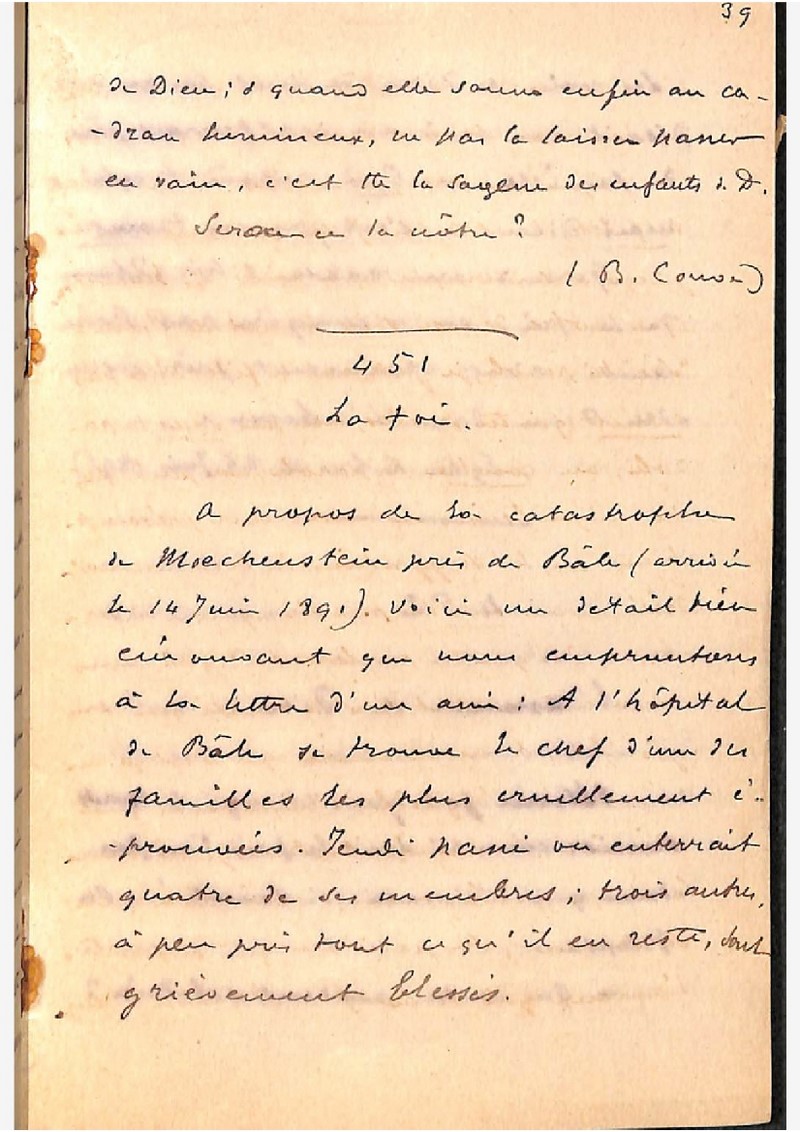 39
de Dieu ; & quand elle sonne enfin au ca-
-dran lumineux, ne pas la laisser passer
en vain, c'est tte la sagesse des enfants d. D.
Sera-ce la nôtre ?
( B. Couve )
451
La foi.
A propos de la catastrophe
de Moechenstein près de Bâle (arrivée
le 14 Juin 1891). Voici un détail bien
émouvant que nous empruntons
à la lettre d'un ami : A l'hôpital
de Bâle se trouve le chef d'une des
familles les plus cruellement é-
-prouvées. Jeudi passé on enterrait
quatre de ses membres ; trois autres,
à peu près tout ce qu'il en reste, sont
grièvement blessés.